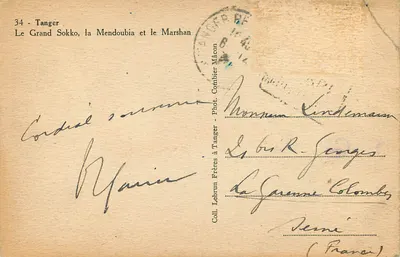 34 - Tanger
Le Grand Sokko, la Mendoubia et le Marshan
TANGER
Cordial souvenir
Coll. Lebrun Frères à Tanger - Phot. Combier Mâcon
Monsieur Lindemann
21 bis R. Georges
La Garenne Colombes
Seine
(France)